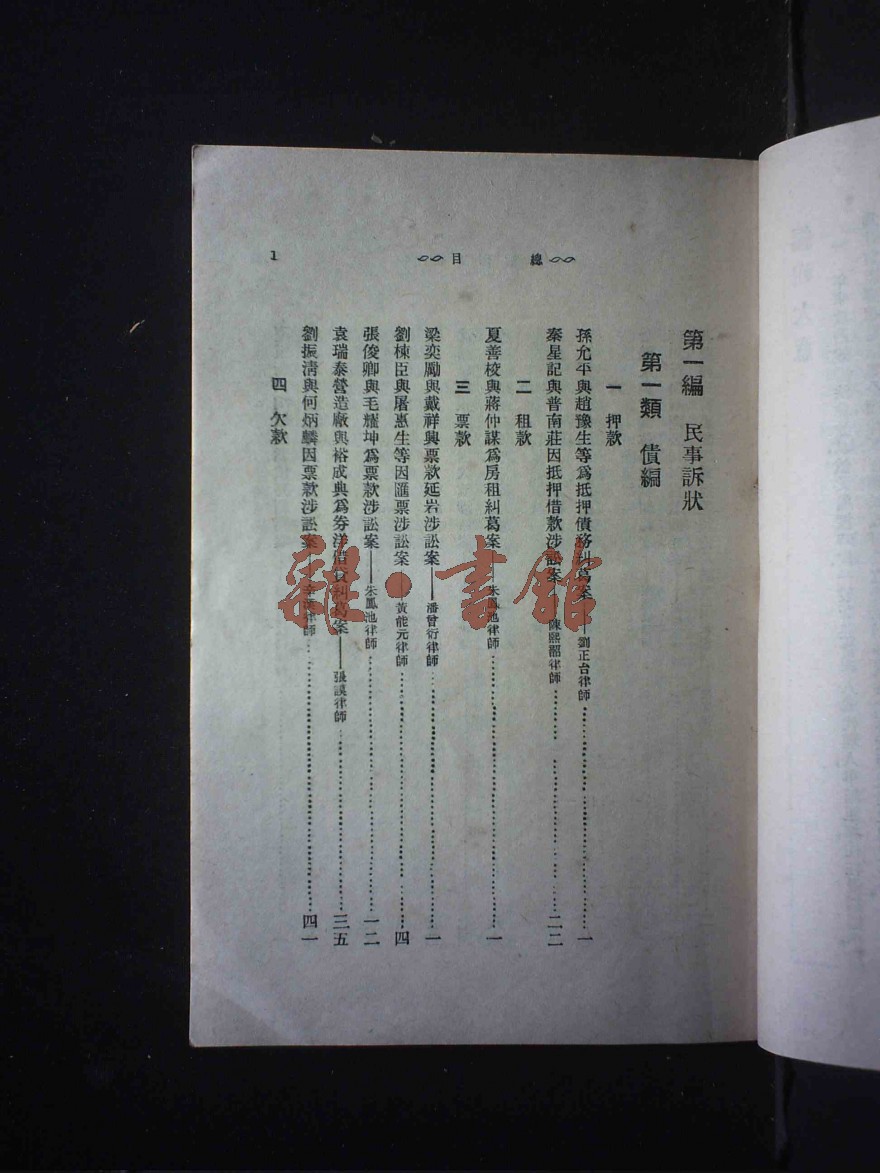 總目
1
第一編　民事訴狀
第一類　債編
一　押款
孫允平與趙豫生等爲抵押債務糾葛案——劉正台律師……一
秦星記與普南莊因抵押借款涉訟案　陳熙　律師……二二
二　租款
夏善校與蔣仲謀爲房租糾葛案——朱鳳池律師……一
三　票款
梁奕勵與戴祥興票款延宕涉訟案——潘曾衍律師……一
劉棟臣與屠惠生等因匯票涉訟案——黃能元律師……四
張俊卿與毛耀坤爲票款涉訟案——朱鳳池律師……一二
袁瑞泰營造廠與裕成典爲券洋借貸糾葛案——張謨律師……三五
劉振淸與何炳麟因票款涉訟案　律師……四一
四　欠款
雜·書館